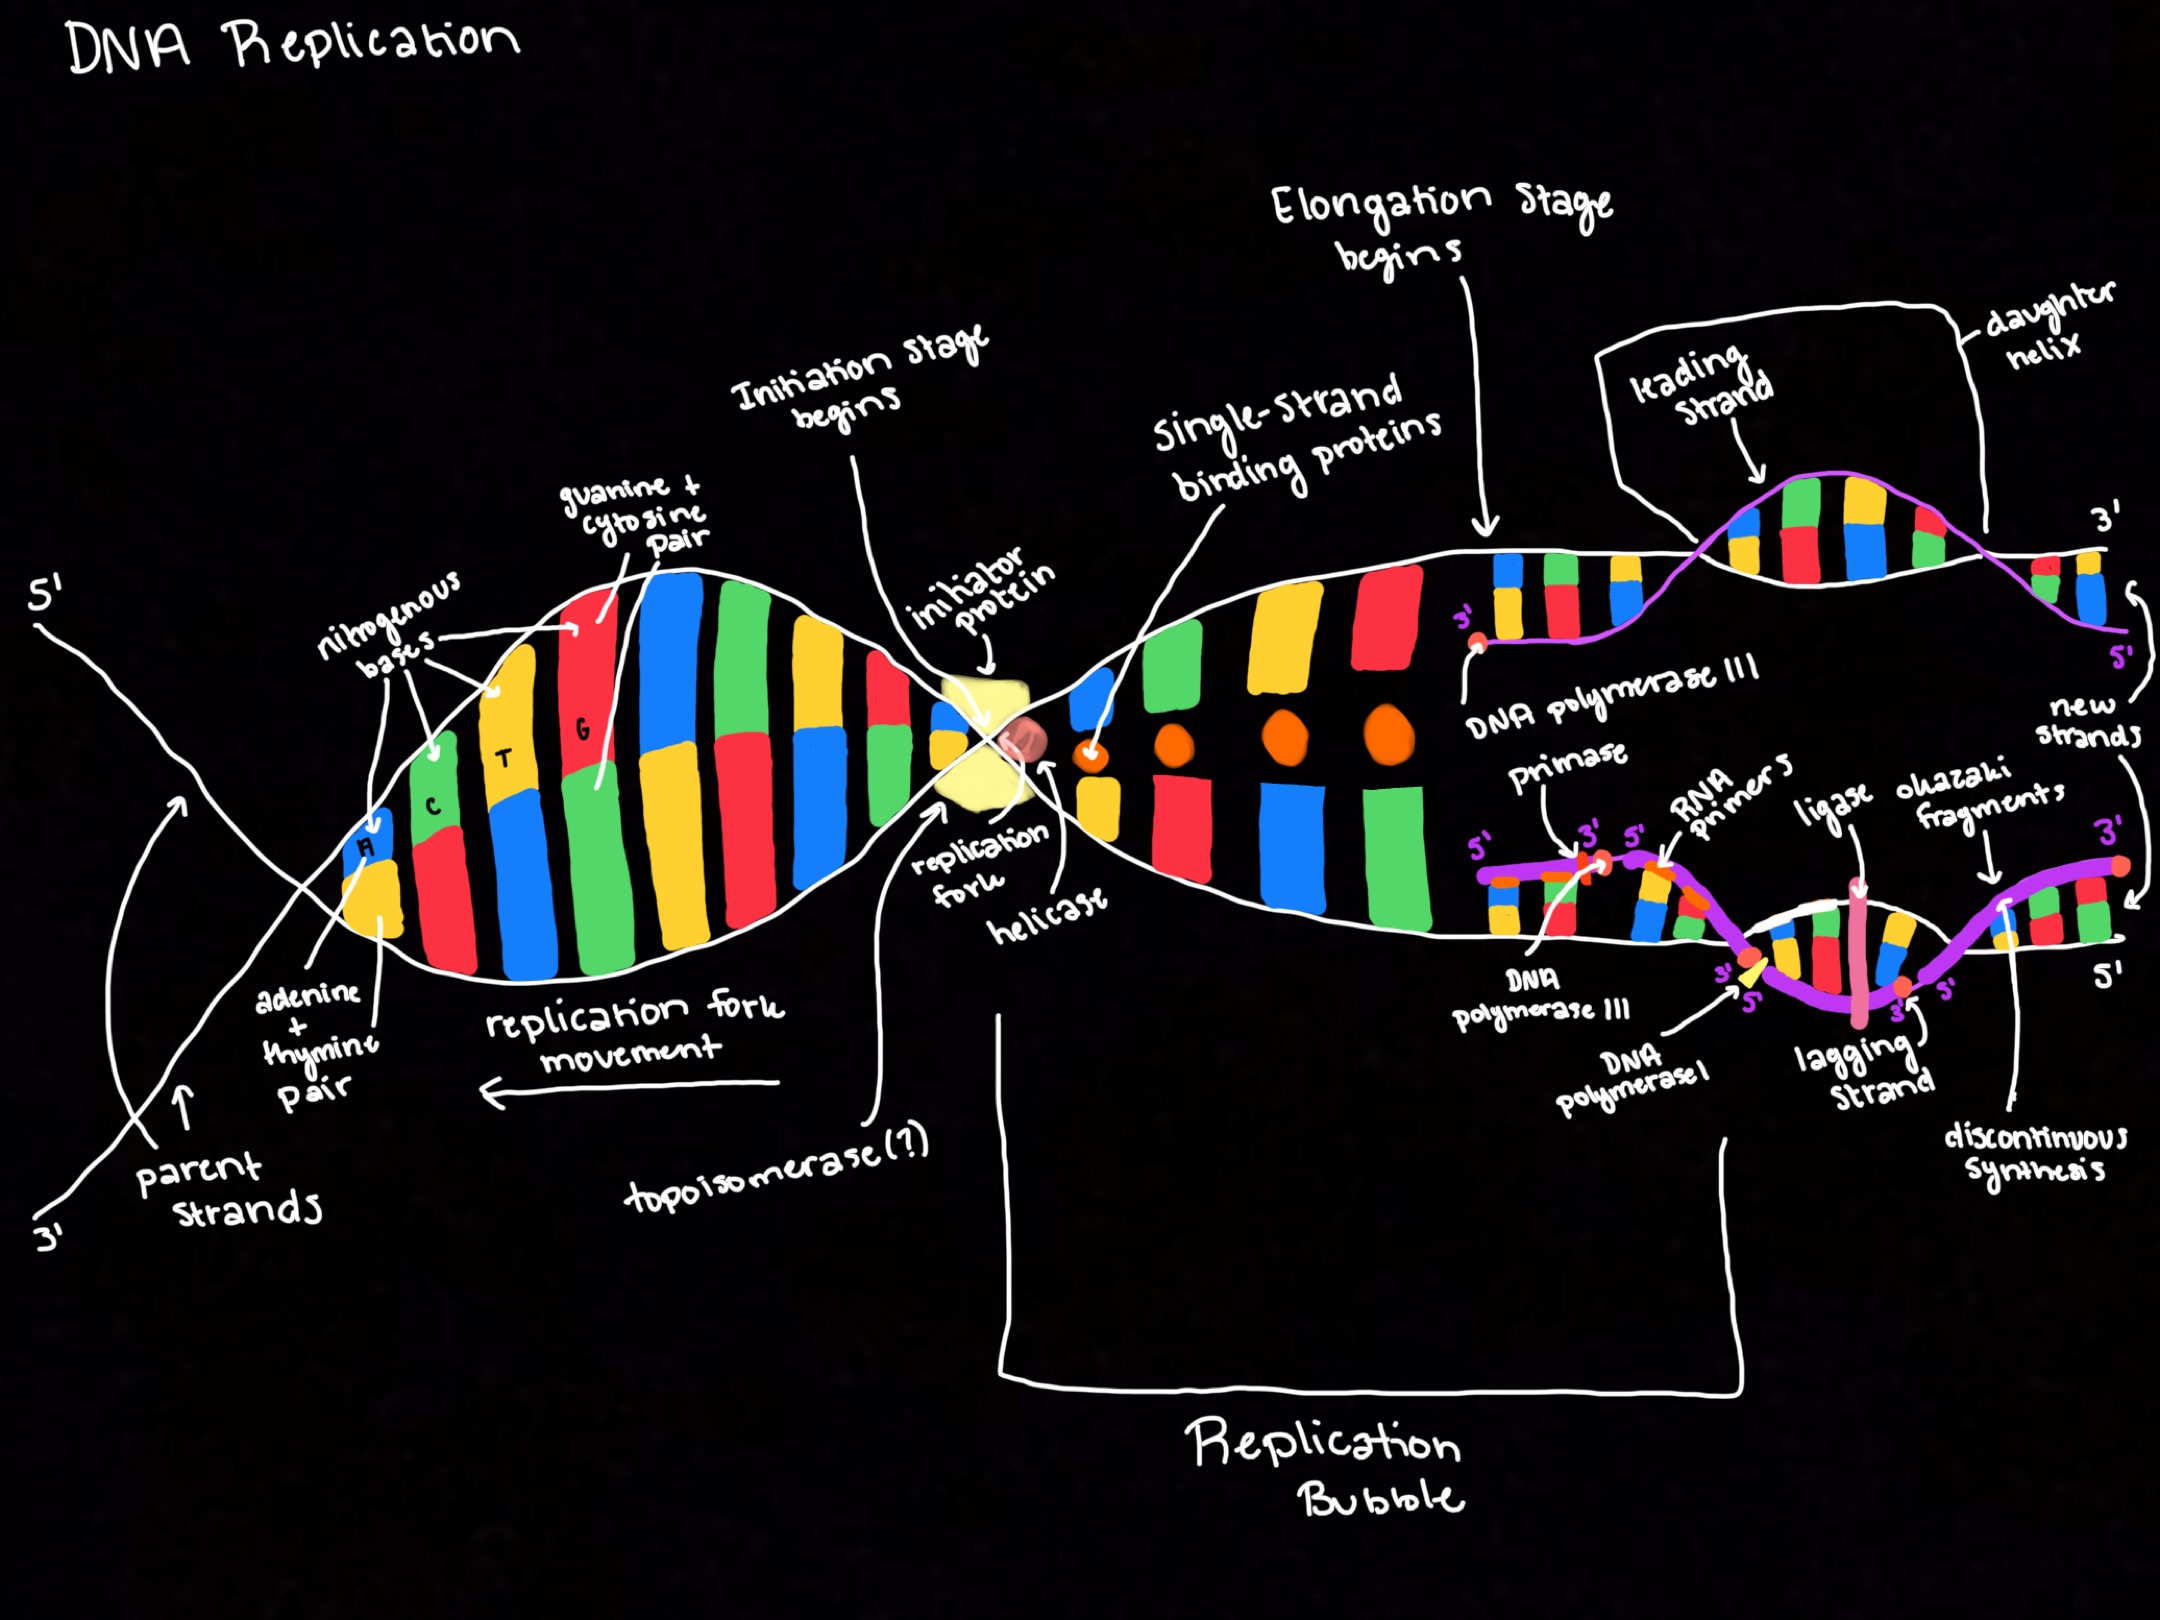 DNA Replication
Elongation Stage
begins
daughter
helix
leading
strand
Initiation Stage
begins
Single-Strand
binding proteins
guanine +
cytosine
pair
initiator
protein
nitrogenous
bases
5'
3'
3'
5'
DNA polymerase III
new
strands
T
G
C
A
primase
RNA
primers
ligase
okazaki
fragments
5'
3'
5'
3'
replication
fork
helicase
DNA
polymerase III
3'
5'
3'
5'
5'
DNA
polymerase I
lagging
strand
discontinuous
synthesis
adenine
+
thymine
pair
replication fork
movement
topoisomerase(?)
parent
strands
3'
Replication
Bubble